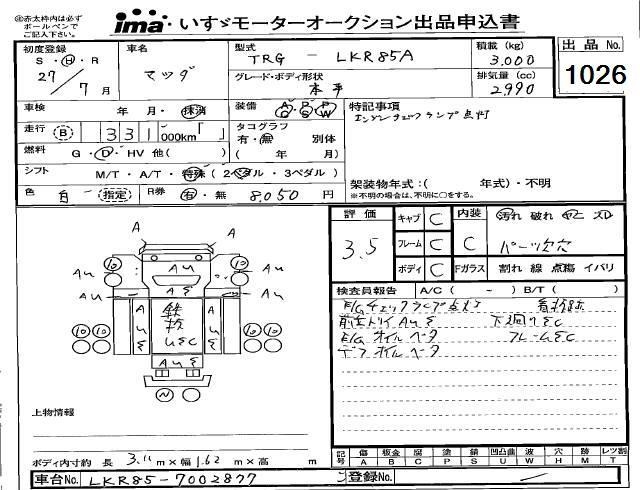 ※赤太枠内は必ず
ボールペンで
ご記入下さい。
ima いすゞモーターオークション出品申込書
初度登録
S・H・R
27 / 7 月
車名
マツダ
型式
TRG - LKR85A
積載 (kg)
3,000
出品 No.
1026
グレード・ボディ形状
排気量 (cc)
2990
車検 年 月・抹消
装備
A/C P/S P/W
特記事項
エンジンチェックランプ点灯
走行 B 331,000km「 」
タコグラフ
有・無 別体
( 年 月)
燃料 G・D・HV 他( )
シフト M/T・A/T・特殊(2ペダル・3ペダル)
架装物年式:( 年式)・不明
※不明の場合は、不明に○をする。
色 白 指定 R券 有・無 8,050 円
評価
3.5
キャブ C
フレーム C
ボディ C
内装 C
Fガラス
汚れ 破れ ヤニ スレ
パーツ欠 穴
割れ 線 点傷 イバリ
検査員報告 A/C( - ) B/T( )
E/Gチェックランプ点灯
E/G オイルベタ
デフ オイルベタ
下廻りSC
フレームSC
A
A
10
10
AU
AU
A
10 10
10 10
N
上物情報
ボディ内寸約 長 3.11 m×幅 1.62 m×高 m
記号
傷 板金 腐 塗 錆 凹凸曲 波 穴 跡 レツ割
A B C P S U W H M T
車台No. LKR85-7002877
登録No.